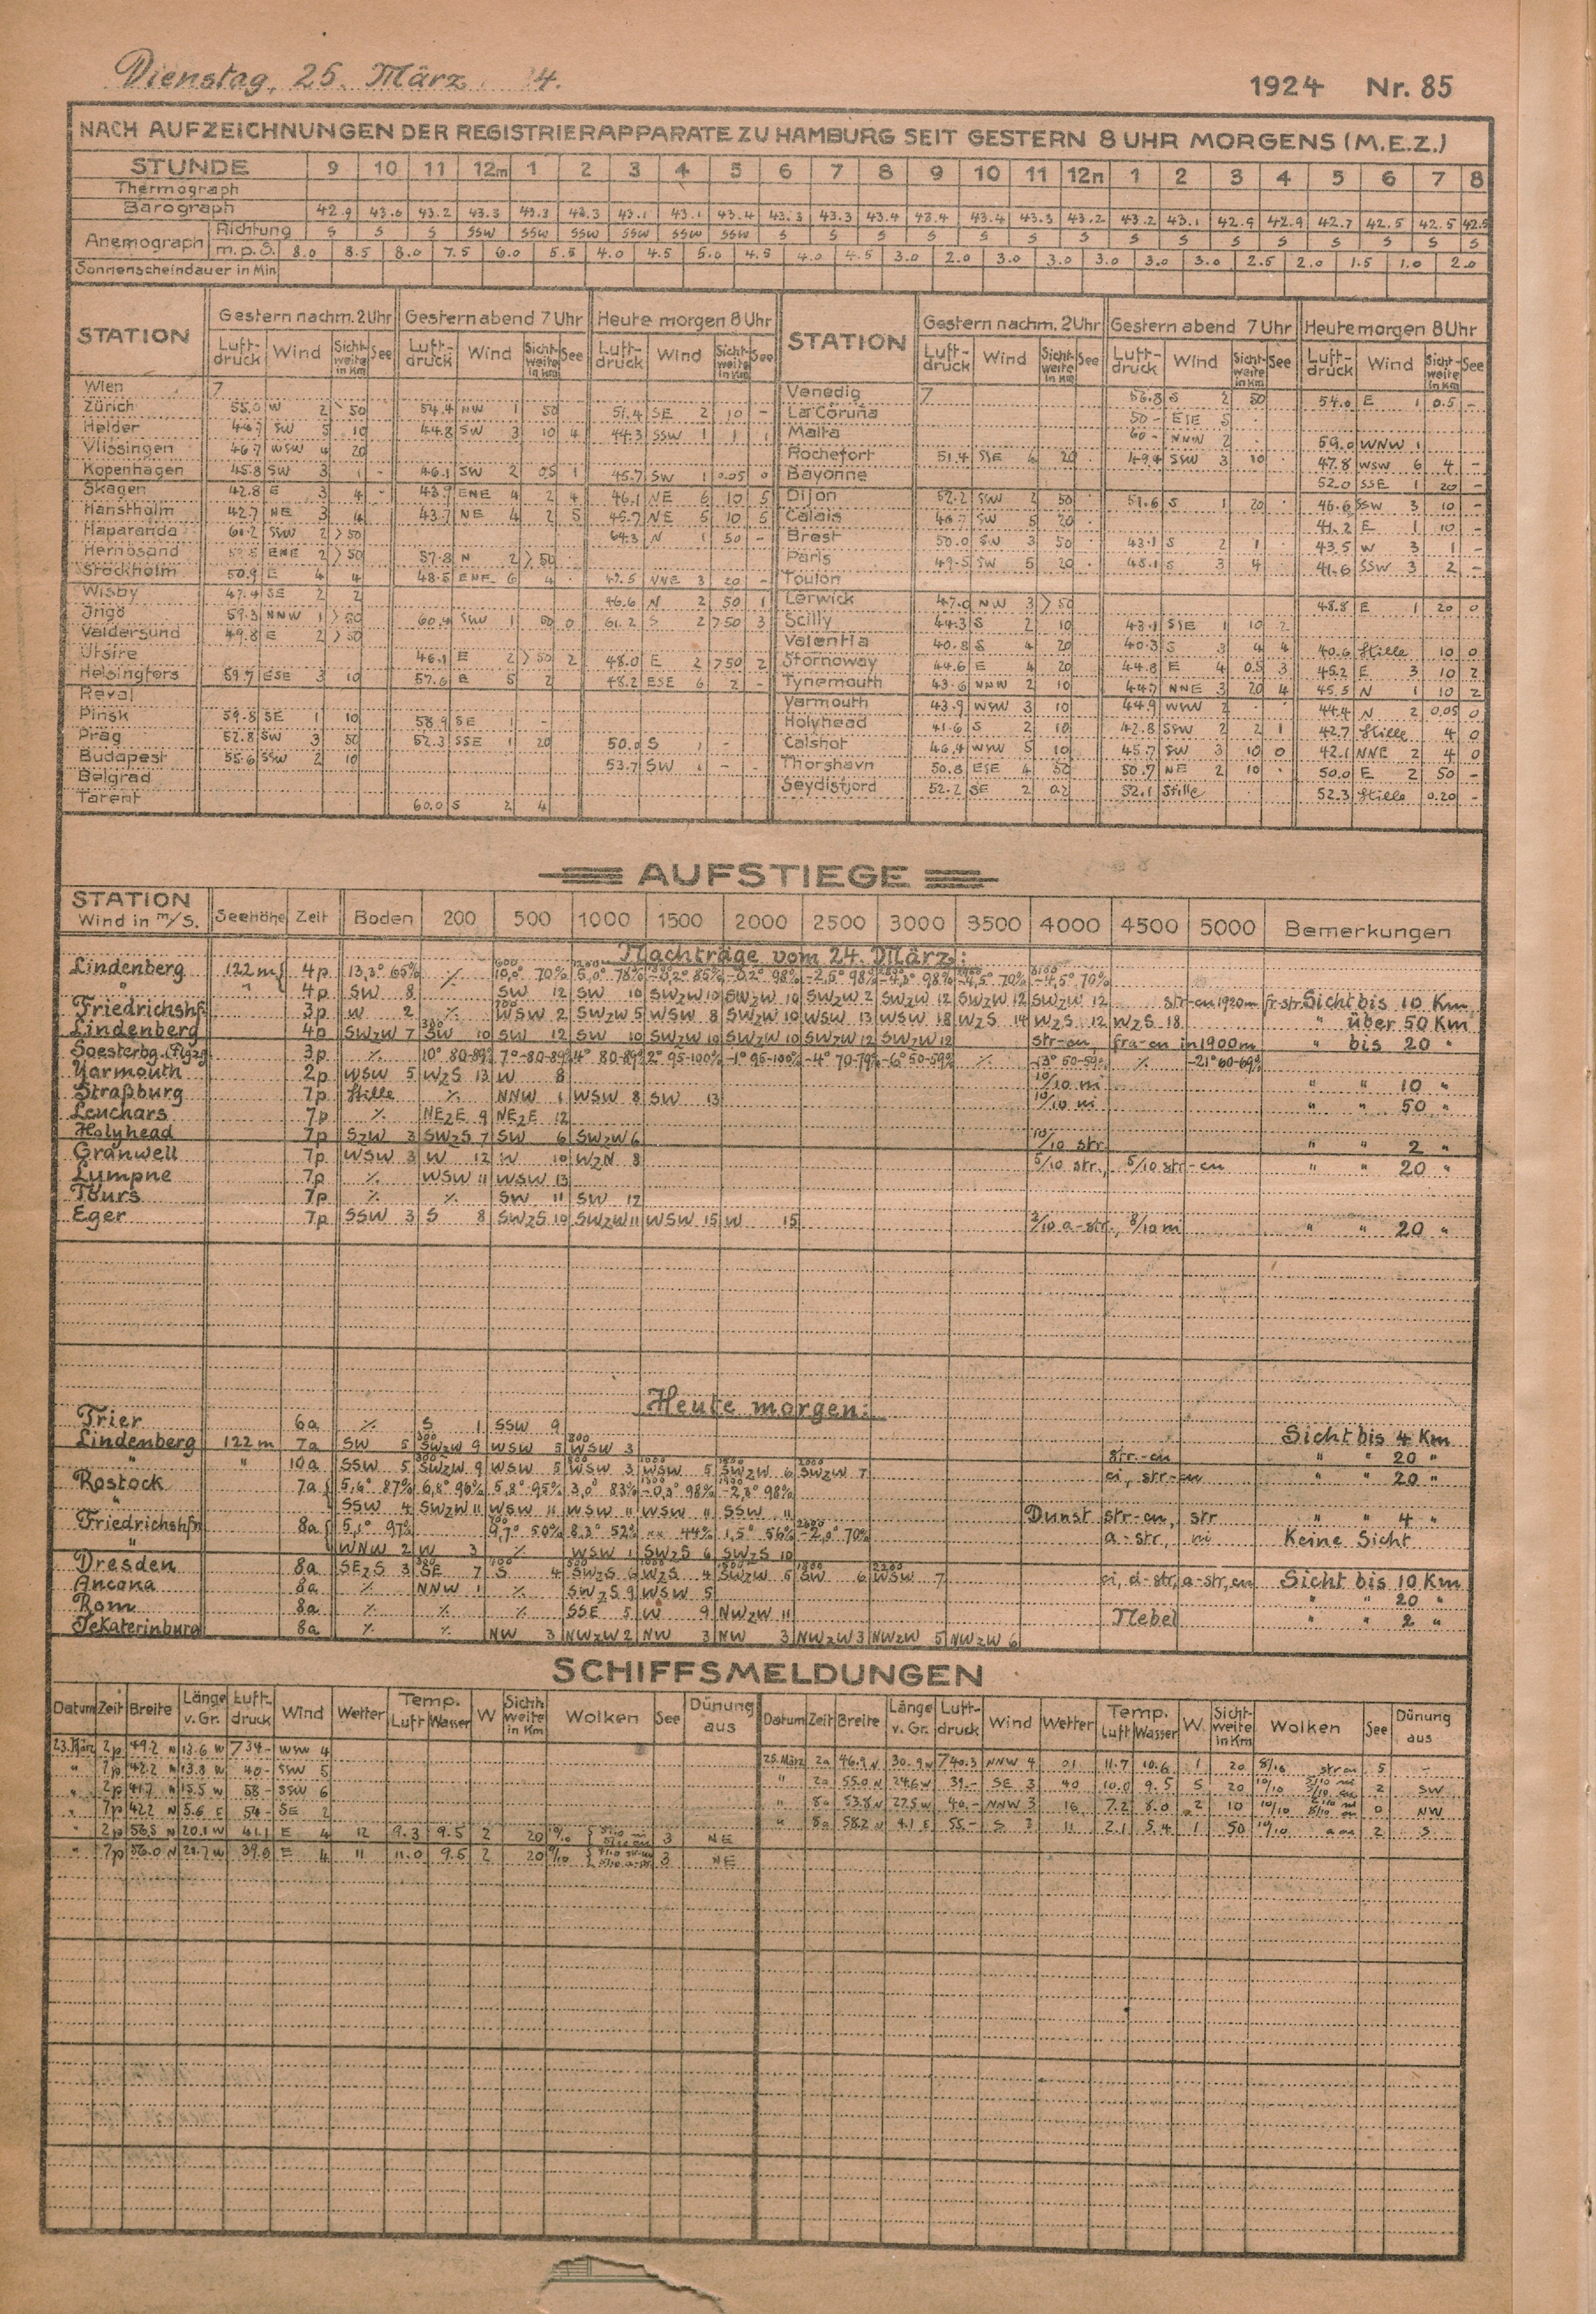 Dienstag, 25. März 4. 1924 Nr. 85
NACH AUFZEICHNUNGEN DER REGISTRIERAPPARATE ZU HAMBURG SEIT GESTERN 8 UHR MORGENS (M.E.Z.)
STUNDE 9 10 11 12m 1 2 3 4 5 6 7 8 9 10 11 12n 1 2 3 4 5 6 7 8
Thermograph
Barograph 42.9 43.6 43.2 43.3 43.3 43.3 43.1 43.1 43.4 43.3 43.3 43.4 43.4 43.4 43.3 43.2 43.2 43.1 42.9 42.9 42.7 42.5 42.5 42.5
Anemograph Richtung S S S SSW SSW SSW SSW SSW SSW S S S S S S S S S S S S S S S
m.p.S. 8.0 8.5 8.0 7.5 6.0 5.5 4.0 4.5 5.0 4.5 4.0 4.5 3.0 2.0 3.0 3.0 3.0 3.0 3.0 2.5 2.0 1.5 1.0 2.0
Sonnenscheindauer in Min
STATION Gestern nachm. 2 Uhr Gestern abend 7 Uhr Heute morgen 8 Uhr STATION Gestern nachm. 2 Uhr Gestern abend 7 Uhr Heute morgen 8 Uhr
Luft-druck Wind Sicht-weite in Km See Luft-druck Wind Sicht-weite in Km See Luft-druck Wind Sicht-weite in Km See Luft-druck Wind Sicht-weite in Km See Luft-druck Wind Sicht-weite in Km See Luft-druck Wind Sicht-weite in Km See
Wien 7 Venedig 7 56.8 S 2 50 54.0 E 1 0.5 -
Zürich W 2 50 54.4 NW 1 50 51.4 SE 2 10 - La Coruña 50 - ESE 5
Helder SW 5 10 44.8 SW 3 10 4 44.3 SSW 1 1 1 Malta 60 - NNW 2 59.0 WNW 1
Vlissingen 46.7 WSW 4 20 Rochefort 51.4 SSE 20 49.4 SSW 3 10 47.8 WSW 6 4 -
Kopenhagen 45.8 SW 3 1 - 46.1 SW 2 0.5 1 45.7 SW 1 0.05 0 Bayonne 52.0 SSE 1 20 -
Skagen 42.8 E 3 4 - 43.9 ENE 4 2 4 46.1 NE 6 10 5 Dijon 52.2 SSW 2 50 51.6 S 1 20 46.6 SSW 3 10 -
Hanstholm 42.7 NE 3 4 43.7 NE 4 2 5 45.7 NE 5 10 5 Calais SW 5 20 41.2 E 1 10 -
Haparanda 61.2 SSW 2 >50 64.3 N 1 50 - Brest 50.0 SW 3 50 43.1 S 2 1 43.5 W 3 1 -
Hernösand ENE 2 >50 57.8 N 2 >50 Paris 49.5 SW 5 20 48.1 S 3 4 41.6 SSW 3 2 -
Stockholm 50.9 E 4 4 48.5 ENE 6 4 NNE 3 20 - Toulon
Wisby 47.4 SE 2 2 46.6 N 2 50 1 Lerwick 47.0 NW 3 >50 48.8 E 1 20 0
Ingö 59.3 NNW 1 >50 60.4 SW 1 50 0 61.2 S 2 >50 3 Scilly 44.3 S 2 10 43.1 SSE 1 10 2
Valdersund 49.8 E 2 >50 Valentia 40.8 S 4 20 40.3 S 3 4 4 40.6 Stille 10 0
Utsire 46.1 E 2 >50 2 48.0 E 2 >50 2 Stornoway 44.6 E 4 20 44.8 E 4 0.5 3 45.2 E 3 10 2
Helsingfors 59.7 ESE 3 10 57.6 E 5 2 48.2 ESE 6 2 - Tynemouth 43.6 NNW 2 10 44.7 NNE 3 20 4 45.5 N 1 10 2
Reval Yarmouth 43.9 WSW 3 10 44.9 WSW 2 44.4 N 2 0.05 0
Pinsk 59.8 SE 1 10 58.9 SE 1 - Holyhead 41.6 S 2 10 42.8 SSW 2 2 1 42.7 Stille 4 0
Prag 52.8 SW 3 50 52.3 SSE 1 20 50.0 S 1 - Calshot 46.4 WSW 5 10 45.7 SW 3 10 0 42.1 NNE 2 4 0
Budapest 55.6 SSW 2 10 53.7 SW 1 - - Thorshavn 50.8 ESE 4 50 50.7 NE 2 10 50.0 E 2 50 -
Belgrad Seydisfjord 52.2 SE 2 0.2 52.1 Stille 52.3 Stille 0.20 -
Tarent 60.0 S 2 4
AUFSTIEGE
STATION Wind in m/s. Seehöhe Zeit Boden 200 500 1000 1500 2000 2500 3000 3500 4000 4500 5000 Bemerkungen
Nachträge vom 24. März:
Lindenberg 122 m 4p 13,3° 65% ⁒ 10,0° 70% 5,0° 78% -0,2° 85% -0,2° 98% -2,5° 98% -4,5° 98% -4,5° 70% -4,5° 70%
" " 4p SW 8 SW 12 SW 10 SWzW 10 SWzW 10 SWzW 2 SWzW 12 SWzW 12 SWzW 12 str-cu 1920m fr-str. Sicht bis 10 Km
Friedrichshf. 3p W 2 ⁒ WSW 2 SWzW 5 WSW 8 SWzW 10 WSW 13 WSW 18 WzS 14 WzS 12 WzS 18 " über 50 Km
Lindenberg 4p SWzW 7 SW 10 SW 12 SW 10 SWzW 10 SWzW 10 SWzW 12 SWzW 12 str-cu, fra-cu in 1900m " bis 20 "
Soesterbg. (Flgzg) 3p ⁒ 10° 80-89% 7° 80-89% 4° 80-89% 2° 95-100% -1° 95-100% -4° 70-79% -6° 50-59% ⁒ -13° 50-59% ⁒ -21° 60-69%
Yarmouth 2p WSW 5 WzS 13 W 8 10/10 ni " " 10 "
Straßburg 7p Stille ⁒ NNW 1 WSW 8 SW 13 10/10 ni " " 50 "
Leuchars 7p ⁒ NEzE 9 NEzE 12
Holyhead 7p SzW 3 SWzS 7 SW 6 SWzW 6 10/10 str. " " 2 "
Granwell 7p WSW 3 W 12 W 10 WzN 8 5/10 str., 5/10 str-cu " " 20 "
Lympne 7p ⁒ WSW 11 WSW 13
Tours 7p ⁒ ⁒ SW 11 SW 12
Eger 7p SSW 3 S 8 SWzS 10 SWzW 11 WSW 15 W 15 2/10 a-str., 8/10 ni " " 20 "
Heute morgen:
Trier 6a ⁒ S 1 SSW 9 Sicht bis 4 Km
Lindenberg 122 m 7a SW 5 SWzW 9 WSW 5 WSW 3 str.-cu " " 20 "
" " 10a SSW 5 SWzW 9 WSW 5 WSW 3 WSW 5 SWzW 6 SWzW 7 ci, str-cu " " 20 "
Rostock 7a 5,6° 87% 6,8° 96% 5,8° 95% 3,0° 83% -0,3° 98% -2,8° 98%
" SSW 4 SWzW 11 WSW 11 WSW 11 WSW 11 SSW 11 Dunst str-cu, str " " 4 "
Friedrichshfn 8a 5,1° 97% 9,7° 50% 8,3° 52% 44% 1,5° 56% -2,0° 70% a-str, ni Keine Sicht
" WNW 2 W 3 ⁒ WSW 1 SWzS 6 SWzS 10
Dresden 8a SEzS 3 SE 7 S 4 SWzS 6 WzS 4 SWzW 5 SW 6 WSW 7 ci, a-str, a-str, cu Sicht bis 10 Km
Ancona 8a ⁒ NNW 1 ⁒ SWzS 9 WSW 5 " " 20 "
Rom 8a ⁒ ⁒ ⁒ SSE 5 W 9 NWzW 11 Nebel " " 2 "
Jekaterinburg 8a ⁒ ⁒ NW 3 NWzW 2 NW 3 NW 3 NWzW 3 NWzW 5 NWzW 6
SCHIFFSMELDUNGEN
Datum Zeit Breite Länge v. Gr. Luft-druck Wind Wetter Temp. Luft Wasser W Sicht-weite in Km Wolken See Dünung aus Datum Zeit Breite Länge v. Gr. Luft-druck Wind Wetter Temp. Luft Wasser W. Sicht-weite in Km Wolken See Dünung aus
23. März 2p 49.2 N 13.6 W 734- WSW 4 25. März 2a 46.9 N 30.9 W 740.3 NNW 4 01 11.7 10.6 1 20 str cu 5 -
" 7p 42.2 N 13.8 W 40- SSW 5 " 2a 55.0 N 24.6 W 39.- SE 3 40 10.0 9.5 5 20 10/10 2 SW
" 2p 41.7 N 15.5 W 58- SSW 6 " 8a 53.8 N 27.5 W 40.- NNW 3 16 7.2 8.0 2 10 10/10 0 NW
" 7p 42.2 N 5.6 E 54- SE 2 " 8a 58.2 N 4.1 E 55- S 3 11 2.1 5.4 1 50 10/10 2 S
" 2p 56.5 N 20.1 W 41.1 E 4 12 9.3 9.5 2 20 3 NE
" 7p 56.0 N W 39.6 E 4 11 11.0 9.5 2 20 3 NE